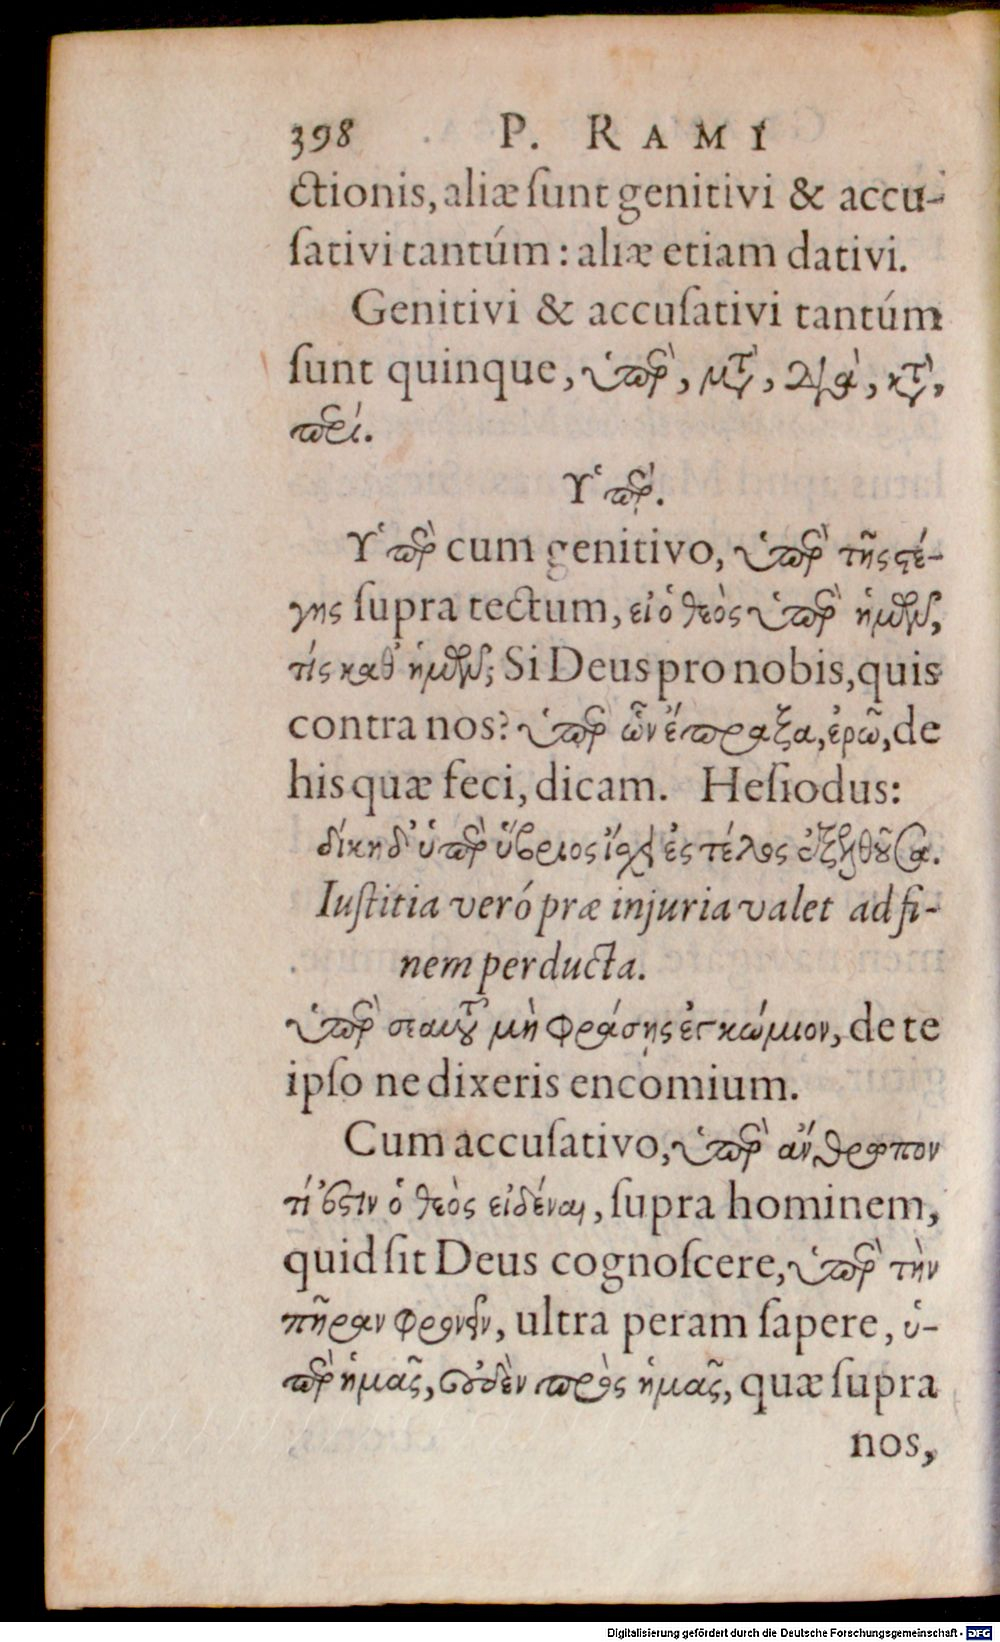 398 P. RAMI
ctionis, aliæ ſunt genitivi & accu-
ſativi tantúm: aliæ etiam dativi.
Genitivi & accuſativi tantúm
ſunt quinque, ὑπὲρ, μετὰ, διὰ, κατὰ,
περί.
Υʽπέρ.
Υʽπὲρ cum genitivo, ὑπὲρ τῆς ϛέ-
γης ſupra tectum, εἰ ὁ θεὸς ὑπὲρ ἡμῶν,
τίς καθ' ἡμῶν; Si Deus pro nobis, quis
contra nos? ὑπὲρ ὧν ἔπραξα, ἐρῶ, de
his quæ feci, dicam. Heſiodus:
δίκη δ' ὑπὲρ ὕβριος ἴσχει ἐς τέλος ἐξελθοῦσα.
Iuſtitia veró præ injuria valet ad fi-
nem perducta.
ὑπὲρ σεαυτοῦ μὴ φράσῃς ἐγκώμιον, de te
ipſo ne dixeris encomium.
Cum accuſativo, ὑπὲρ ἄνθρωπον
τί ἐϛιν ὁ θεὸς εἰδέναι, ſupra hominem,
quid ſit Deus cognoſcere, ὑπὲρ τὴν
πῆραν φρονεῖν, ultra peram ſapere, ὑ-
πὲρ ἡμᾶς, οὐδὲν πρὸς ἡμᾶς, quæ ſupra
nos,
Digitalisierung gefördert durch die Deutsche Forschungsgemeinschaft - DFG